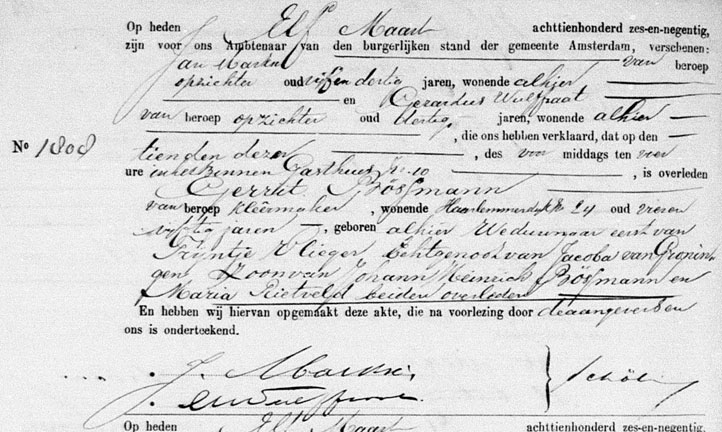 Op heden Elf Maart achttienhonderd zes-en-negentig,
zijn voor ons Ambtenaar van den burgerlijken stand der gemeente Amsterdam, verschenen:
Jan van beroep
opzichter oud vijf en dertig jaren, wonende alhier
en Gerardus Wulfraat
van beroep opzichter oud dertig jaren, wonende alhier
, die ons hebben verklaard, dat op den
No 1808 tienden dezer , des voor middags ten vier
ure in het Binnen Gasthuis No. 10 , is overleden
Gerrit Bössmann
van beroep kleermaker , wonende Haarlemmerdijk No 24 oud
vijftig jaren , geboren alhier Weduwnaar eerst van
Trijntje Vlieger Echtgenoot van Jacoba van Gronin
gen Zoon van Johann Heinrich Bössmann en
Maria Rietveld beiden overleden
En hebben wij hiervan opgemaakt deze akte, die na voorlezing door de aangevers en
ons is onderteekend.
J.
Op heden Elf Maart achttienhonderd zes-en-negentig,